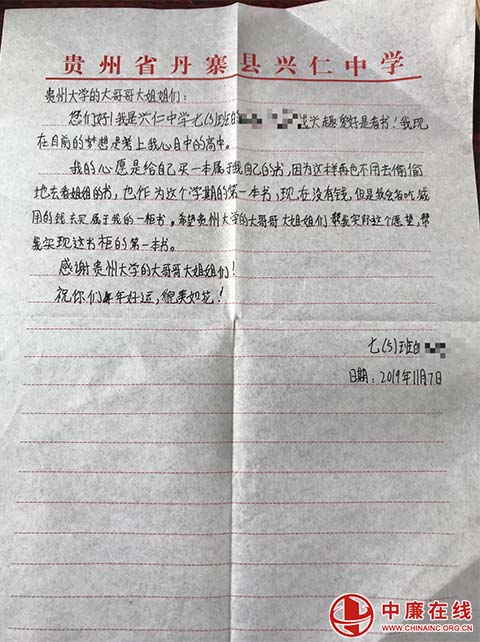 贵州省丹寨县兴仁中学
贵州大学的大哥哥大姐姐们：
您们好！我是兴仁中学七(5)班的 兴趣爱好是看书！我现
在目前的梦想是考上我心目中的高中。
我的心愿是给自己买一本属于我自己的书，因为这样再也不用去偷偷
地去看姐姐的书，也作为这个学期的第一本书，现在没有钱，但是我会省吃减
用的钱去买属于我的一柜书，希望贵州大学的大哥哥大姐姐们帮我实现这个愿望，帮
我实现这书柜的第一本书。
感谢贵州大学的大哥哥大姐姐们！
祝你们年年好运，貌美如花！
七(5)班
日期：2019年11月7日
中廉在线
WWW.CHINAINC.ORG.CN